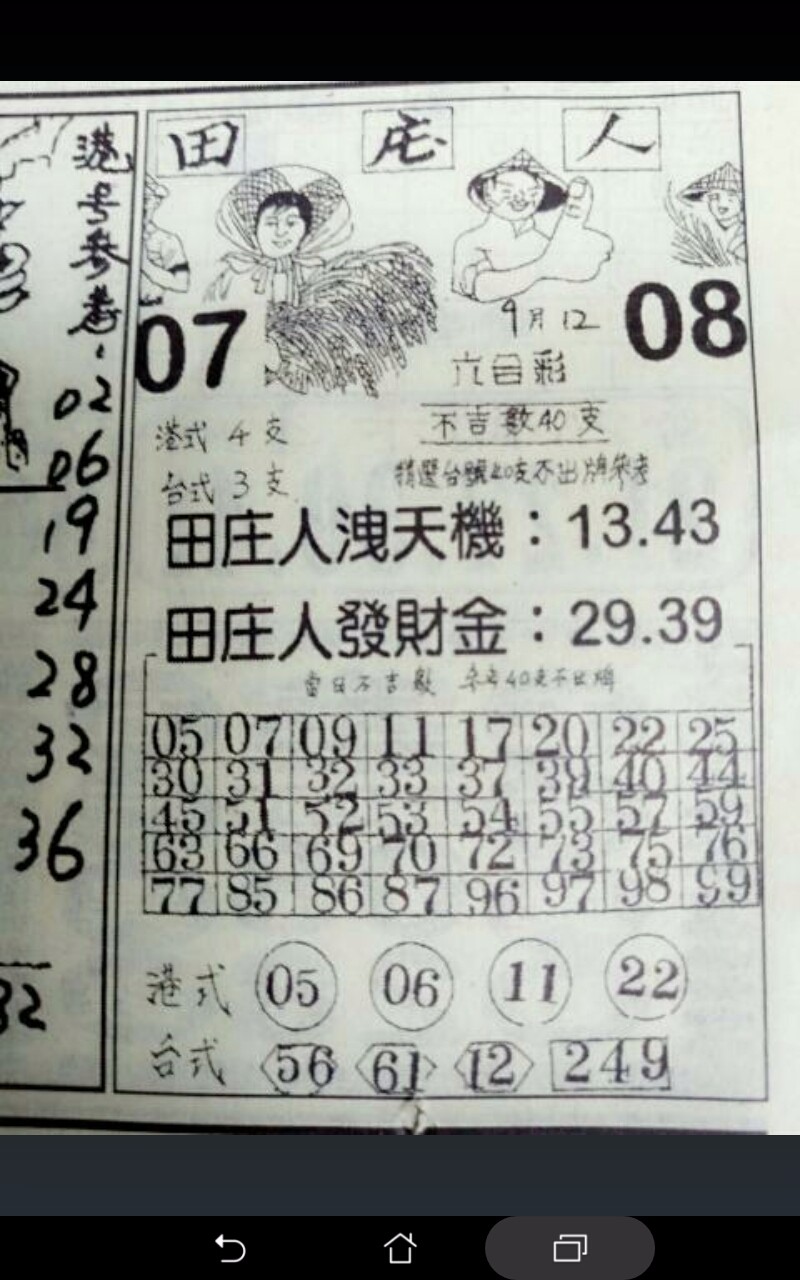 港号參考
02
06
19
24
28
32
36
32
田庄人
07
08
9月12
六合彩
港式 4支
不吉數40支
台式 3支
精選台號40支不出牌參考
田庄人洩天機：13.43
田庄人發財金：29.39
當日不吉數 參考40支不出牌
05 07 09 11 17 20 22 25
30 31 32 33 37 39 40 44
45 51 52 53 54 55 57 59
63 66 69 70 72 73 75 76
77 85 86 87 96 97 98 99
港式 05 06 11 22
台式 56 61 12 249